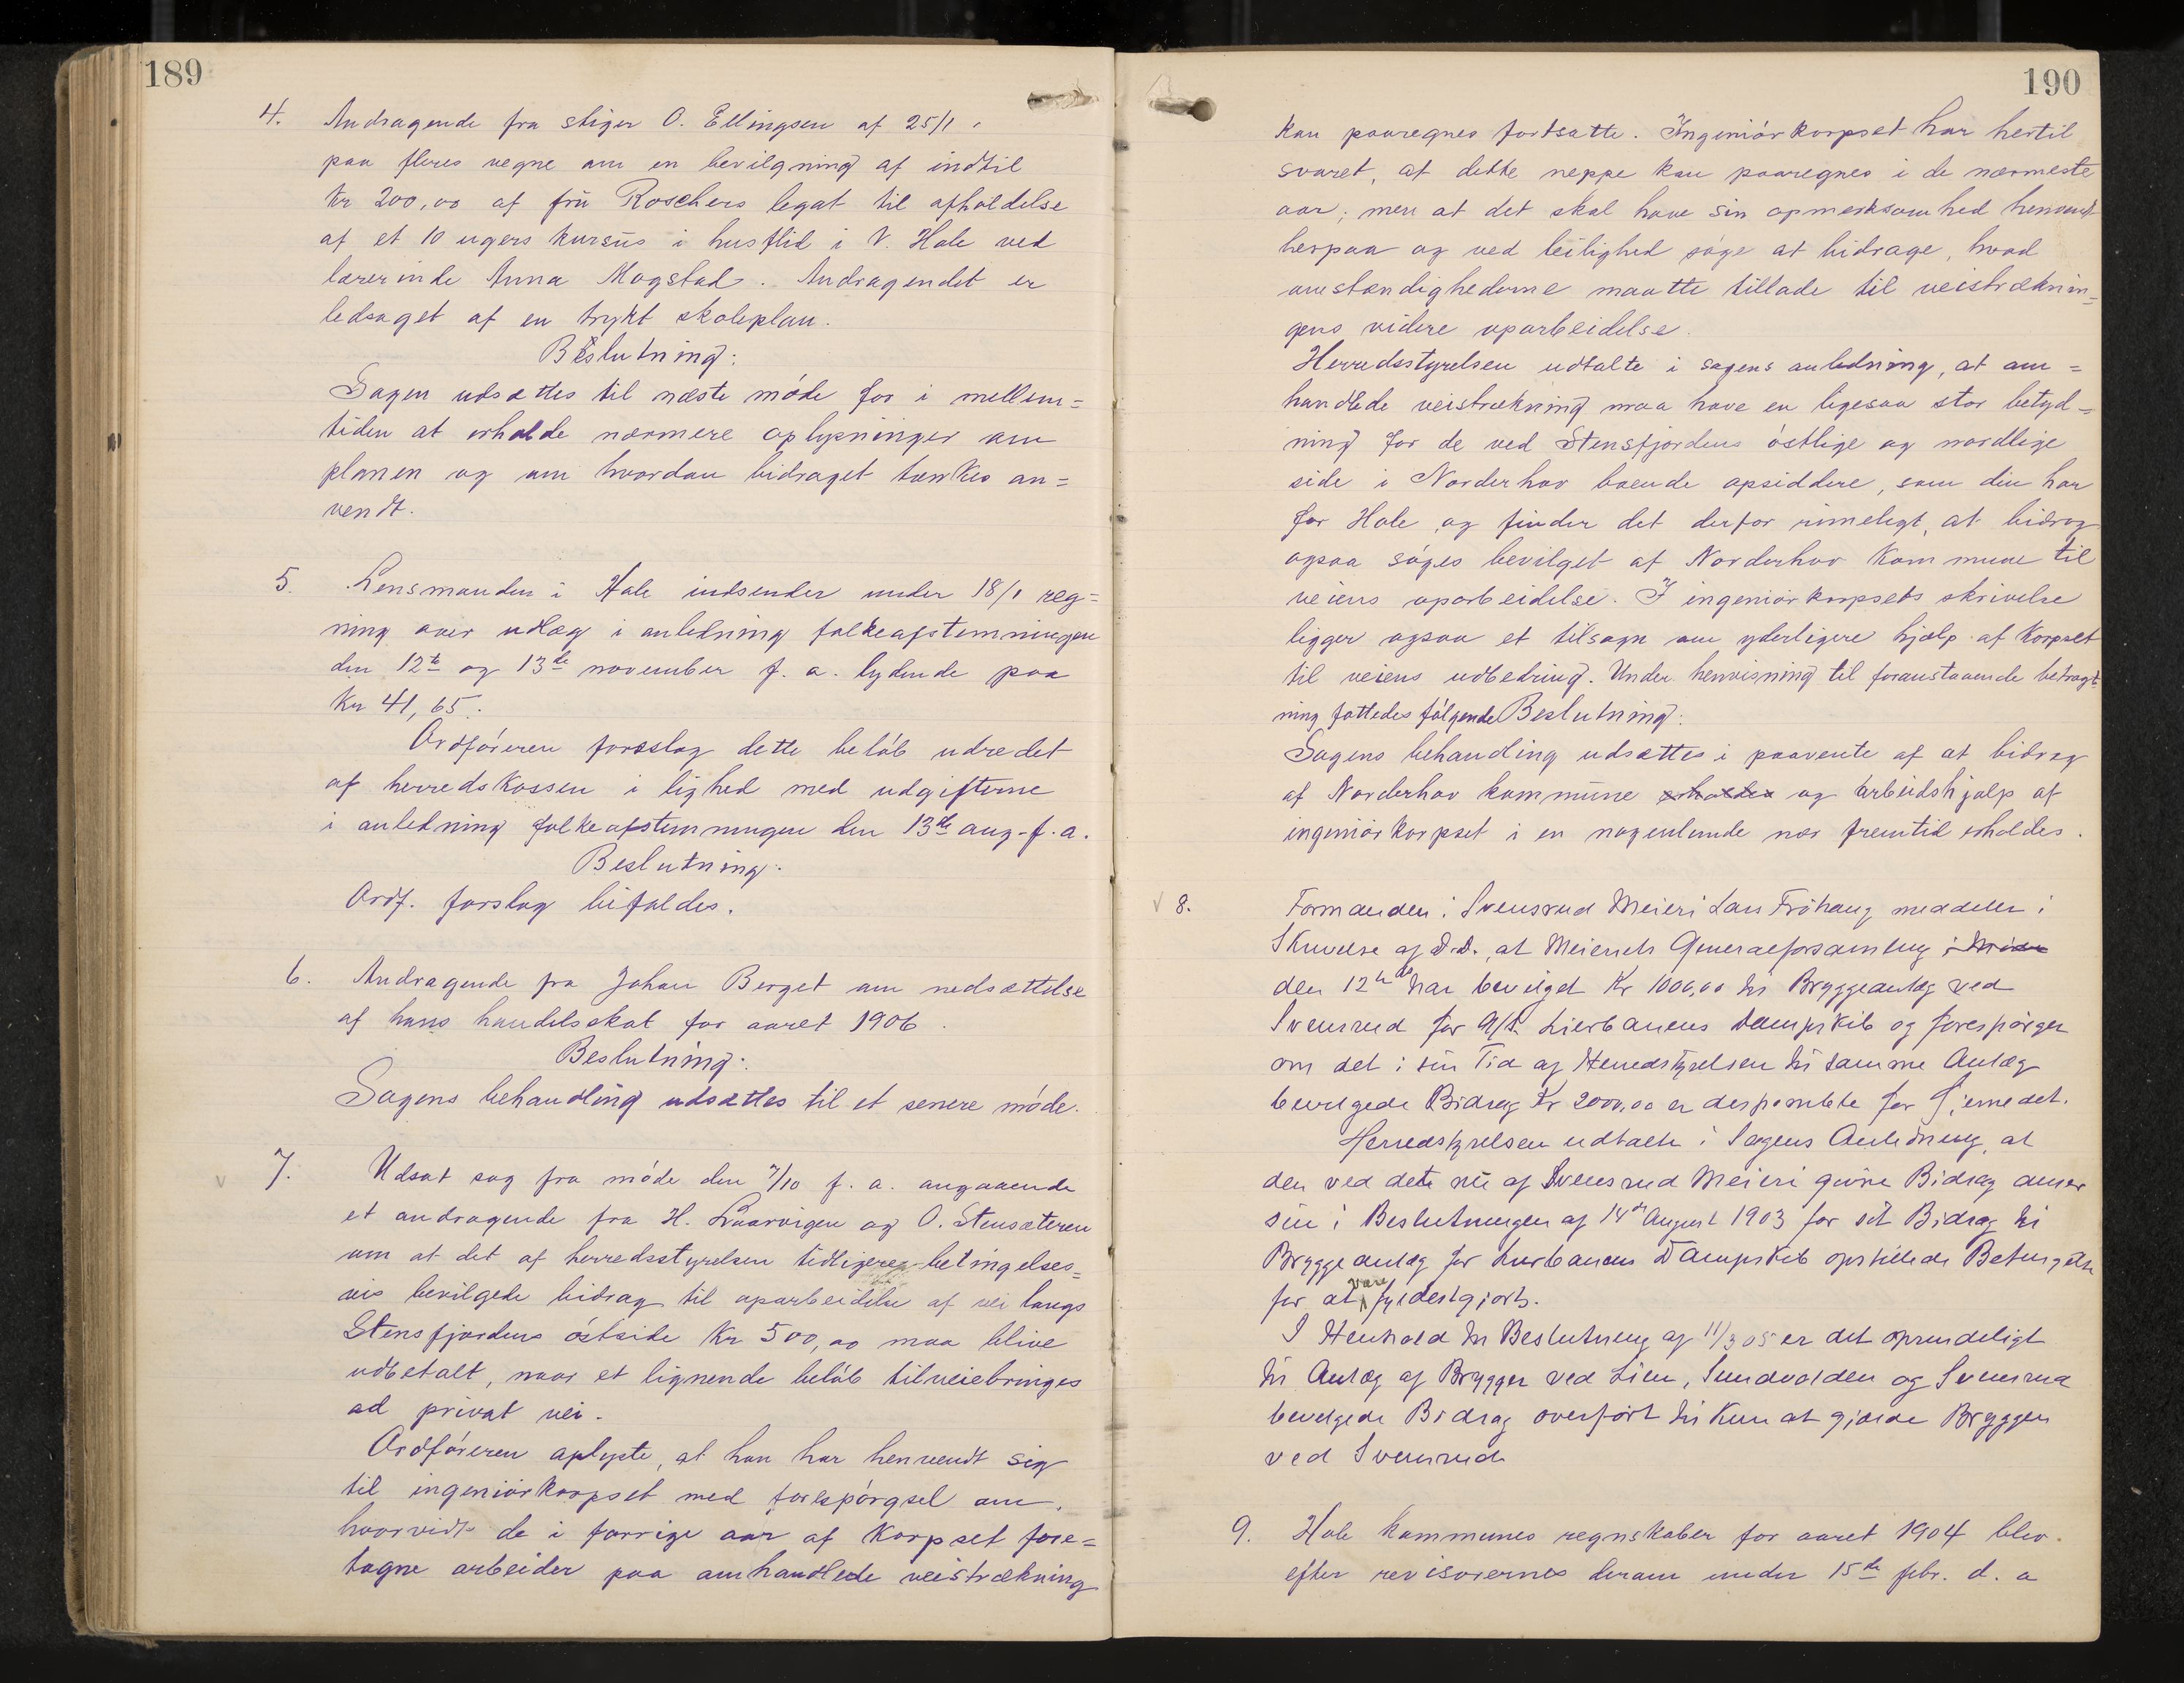 189
4. Andragende fra stiger O. Ellingsen af 25/1
paa fleres vegne om en bevilgning af indtil
kr 200,00 af frü Roschers legat til afholdelse
af et 10 ugers kursus i husflid i V. Hole ved
lærerinde Anna Mogstad. Andragendet er
ledsaget af en trykt skoleplan.
Beslutning:
Sagen udsættes til næste møde for i mellem=
tiden at erholde nærmere oplysninger om
planen og om hvordan bidraget tænkes an=
vendt.
5. Lensmanden i Hole indsender under 18/1 reg=
ning over udlæg i anledning folkeafstemningen
den 12te og 13de november f. a. lydende paa
kr 41,65.
Ordføreren foreslog dette beløb udredet
af herredskassen i lighed med udgifterne
i anledning folkeafstemningen den 13de aug. f. a.
Beslutning:
Ordf. forslag bifaldes.
6. Andragende fra Johan Berget om nedsættelse
af hans handelsskat for aaret 1906.
Beslutning:
Sagens behandling udsættes til et senere møde.
7. Udsat sag fra møde den 7/10 f. a. angaaende
et andragende fra H. og O. Stensæteren
om at det af herredsstyrelsen tidligere betingelses=
vis bevilgede bidrag til oparbeidelse af vei langs
Stensfjordens østside Kr 500,00 maa blive
udbetalt, naar et lignende beløb tilveiebringes
ad privat vei.
Ordføreren oplyste, at han har henvendt sig
til ingeniørkorpset med forespørgsel om,
hvorvidt de i forrige aar af Korpset fore=
tagne arbeider paa omhandlede veistrækning
190
kan paaregnes fortsatte. Ingeniørkorpset har hertil
svaret, at dette neppe kan paaregnes i de nærmeste
aar; men at det skal have sin opmerksomhed henvendt
herpaa og ved leilighed søge at bidrage, hvad
omstændighederne maatte tillade til veistræknin=
gens videre oparbeidelse.
Herredsstyrelsen udtalte i sagens anledning, at om=
handlede veistrækning maa have en ligesaa stor betyd=
ning for de ved Stensfjordens østlige og nordlige
side i Norderhov boende opsiddere, som den har
for Hole og finder det derfor rimeligt, at bidrag
ogsaa søges bevilget af Norderhov Kommune til
veiens oparbeidelse. I ingeniørkorpsets skrivelse
ligger ogsaa et tilsagn om yderligere hjælp af Korpset
til veiens udbedring. Under henvisning til foranstaaende betragt=
ning fattedes følgende Beslutning:
Sagens behandling udsættes i paavente af at bidrag
af Norderhov kommune erholdes og arbeidshjælp af
ingeniørkorpset i en nogenlunde nær fremtid erholdes.
8. Formanden i Svensrud Meieri Lars Frøhaug meddeler i
Skrivelse af D.D., at Meieriets Generalforsamling i
den 12te ds har bevilget Kr 1000,00 til Bryggeanlæg ved
Svensrud for A/S Lierbanens Dampskib og forespørger
om det i sin Tid af Herredstyrelsen til samme Anlæg
bevilgede Bidrag Kr 2000,00 er disponibelt for Øiemedet.
Herredstyrelsen udtalte i Sagens Anledning, at
den ved dete nu af Svensrud Meieri givne Bidrag anser
sin i Beslutningen af 14de August 1903 for sit Bidrag til
Bryggeanlæg for Lierbanens Dampskib opstillede Betingelse
for at være fyldestgjort.
I Henhold til Beslutning af 11/3 05 er det oprindeligt
til Anlæg af Brygger ved Lien, Sundvolden og Svensrud
bevilgede Bidrag overført til Kun at gjælde Bryggen
ved Svensrud.
9. Hole kommunes regnskaber for aaret 1904 blev
efter revisorernes derom under 15de febr. d. a